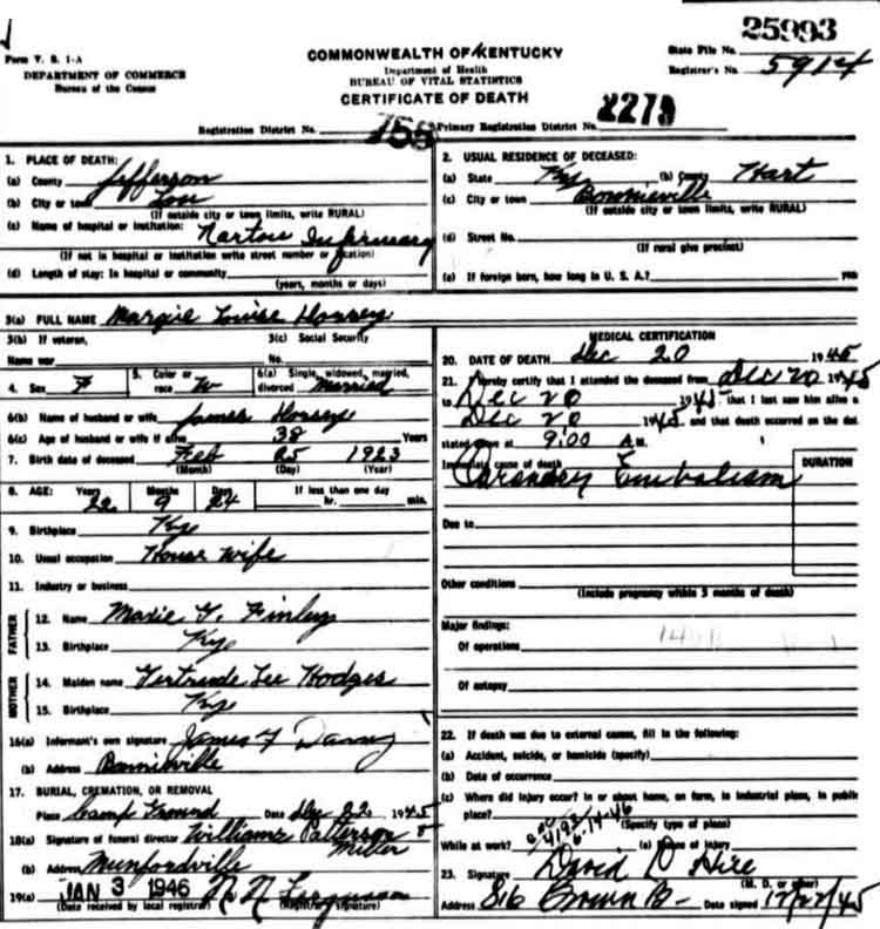 25993
Form V. S. 1-A
COMMONWEALTH OF KENTUCKY
State File No.
DEPARTMENT OF COMMERCE
Department of Health
Registrar's No. 5914
Bureau of the Census
BUREAU OF VITAL STATISTICS
CERTIFICATE OF DEATH
Registration District No. 755 Primary Registration District No. 2279
1. PLACE OF DEATH:
(a) County Jefferson
(b) City or town Lou
(If outside city or town limits, write RURAL)
(c) Name of hospital or institution: Norton Infirmary
(If not in hospital or institution write street number or location)
(d) Length of stay: In hospital or community
(years, months or days)
2. USUAL RESIDENCE OF DECEASED:
(a) State Ky (b) County Hart
(c) City or town Bonnieville
(If outside city or town limits, write RURAL)
(d) Street No.
(If rural give precinct)
(e) If foreign born, how long in U. S. A.? yrs
3(a) FULL NAME Margie Louise
3(b) If veteran, 3(c) Social Security
Name war No.
4. Sex F 5. Color or race W 6(a) Single, widowed, married, divorced Married
6(b) Name of husband or wife James
6(c) Age of husband or wife if alive 38 Years
7. Birth date of deceased Feb 25 1923
(Month) (Day) (Year)
8. AGE: Years 22 Months 9 Days 24 If less than one day hr. min.
9. Birthplace Ky
10. Usual occupation House wife
11. Industry or business
FATHER
12. Name F. Finley
13. Birthplace Ky
MOTHER
14. Maiden name Gertrude Lee Hodges
15. Birthplace Ky
16(a) Informant's own signature James
(b) Address Bonnieville
17. BURIAL, CREMATION, OR REMOVAL
Place Camp Ground Date Dec 22 1945
18(a) Signature of funeral director Williams Patterson & Miller
(b) Address Munfordville
19(a) JAN 3 1946 N N Ferguson
(Date received by local registrar) (Registrar's signature)
MEDICAL CERTIFICATION
20. DATE OF DEATH Dec 20 1945
21. I hereby certify that I attended the deceased from Dec 20 1945
to Dec 20 1945 that I last saw him alive o
Dec 20 1945 and that death occurred on the dat
stated above at 9:00 A.M.
Immediate cause of death
Coronary Embolism
DURATION
Due to
Other conditions
(Include pregnancy within 3 months of death)
Major findings:
Of operations
Of autopsy
22. If death was due to external causes, fill in the following:
(a) Accident, suicide, or homicide (specify)
(b) Date of occurrence
(c) Where did injury occur? In or about home, on farm, in industrial place, in public
place?
(Specify type of place)
6-14-46
While at work? (e) Means of Injury
23. Signature David D Hire
(M. D. or other)
Address 816 Brown B- Date signed 12/22/45